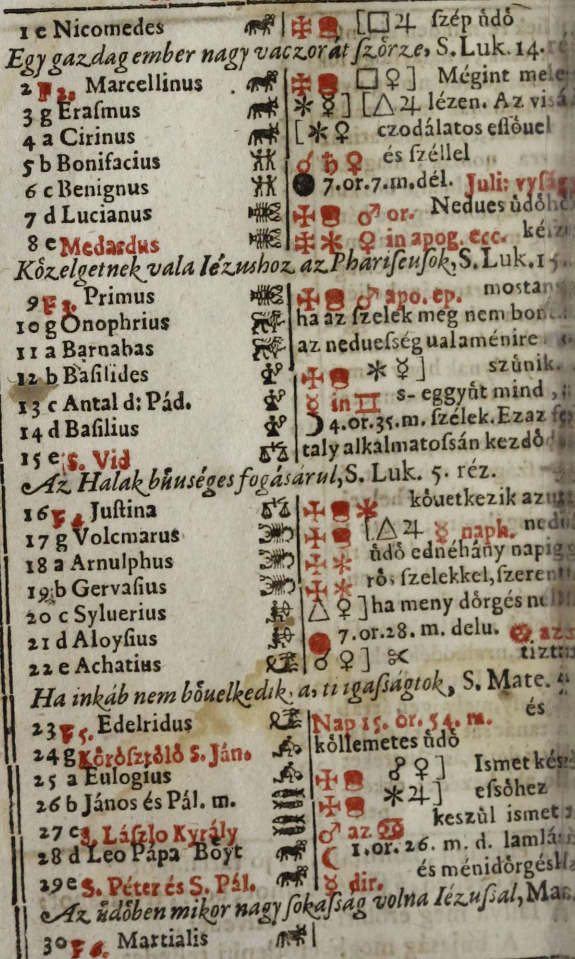 1 e Nicomedes ✠ [□ ♃ ſzép üdő
Egy gazdag ember nagy vaczorát ſzőrze, S. Luk. 14.
2 F 2. Marcellinus ✠ □ ♀ ] Mégint
3 g Eraſmus ✶ ☿ ] [△ ♃ lézen. Az
4 a Cirinus [ ✶ ♀ czodálatos eſſőuel
5 b Bonifacius ♂ ♄ ♀ és ſzéllel
6 c Benignus ● 7. or. 7. m. dél. Juli:
7 d Lucianus ✠ ♂ or. Nedues
8 e Medardus ✠ ✶ ♀ in apog. ecc.
Kőzelgetnek vala Iézushoz az Phariſeuſok, S. Luk.
9 F 3. Primus ✠ ♂ apo. ep.
10 g Onophrius ha az ſzelek meg nem
11 a Barnabas az neduefség ualaménire
12 b Baſilides ✠ ✶ ☿ ] szűnik.
13 c Antal d: Pád. ☿ in ♊ s- eggyűt mind
14 d Baſilius ☽ 4. or. 35. m. ſzélek. Ez az
15 e S. Vid taly alkalmatoſsán kezdő
Az Halak bűuséges fogásárul, S. Luk. 5. réz.
16 F 4 Juſtina ✠ ✶ kőuetkezik
17 g Volcmarus ✠ [△ ♃ ☿ naph.
18 a Arnulphus ✠ ✶ űdő ednéhány
19 b Gervaſius ✠ ✶ rős ſzelekkel,
20 c Syluerius △ ♀ ] ha meny dőrgés
21 d Aloyſius 7. or. 28. m. delu.
22 e Achatius ☌ ♀ ] ✂
Ha inkáb nem bőuelkedik, a, ti igaſságtok, S. Mate.
23 F 5. Edelridus Nap 15. or. 54. m. és
24 g Kőrőſztőlő S. Ján. kőllemetes űdő
25 a Eulogius ✠ ☍ ♀ ] Ismet
26 b János és Pál. m. ✠ ✶ ♃ ] eſsőhez
27 c S. Láſzlo Kyrály ♂ az ♋ keszűl ismet
28 d Leo Pápa Bőyt ☾ 1. or. 26. m. d.
29 e S. Péter és S. Pál. ☿ dir. és
Az űdőben mikor nagy ſokaſság volna Iézuſsal,
30 F 6. Martialis